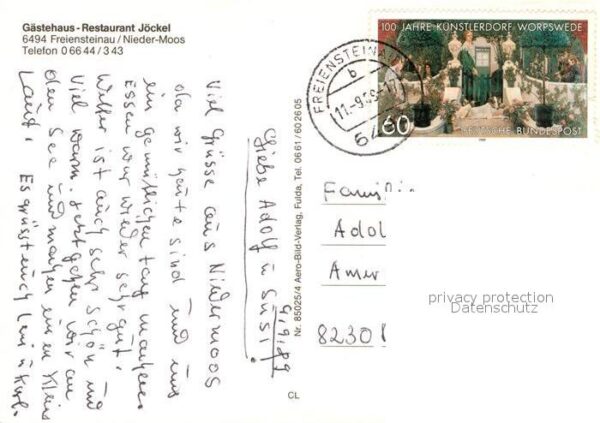 Gästehaus - Restaurant Jöckel
6494 Freiensteinau / Nieder-Moos
Telefon 0 66 44 / 3 43
100 JAHRE KÜNSTLERDORF WORPSWEDE
60
DEUTSCHE BUNDESPOST
FREIENSTEINAU
b
-9.
64
9/9.89
Liebe Adolf u Susi!
Viel Grüsse aus Niedermoos
da wir heute sind und uns
ein gemütlichen tag machen.
Essen war wieder sehr gut!
Wetter ist auch sehr schön und
Viel warm. Jetzt gehen wir an
den See und machen ein kleis
Lauf! Es grüsst euch
Nr. 85025/4 Aero-Bild-Verlag, Fulda, Tel. 06 61 / 60 26 05
CL
Fami
Adol
Amer
privacy protection
Datenschutz
8230